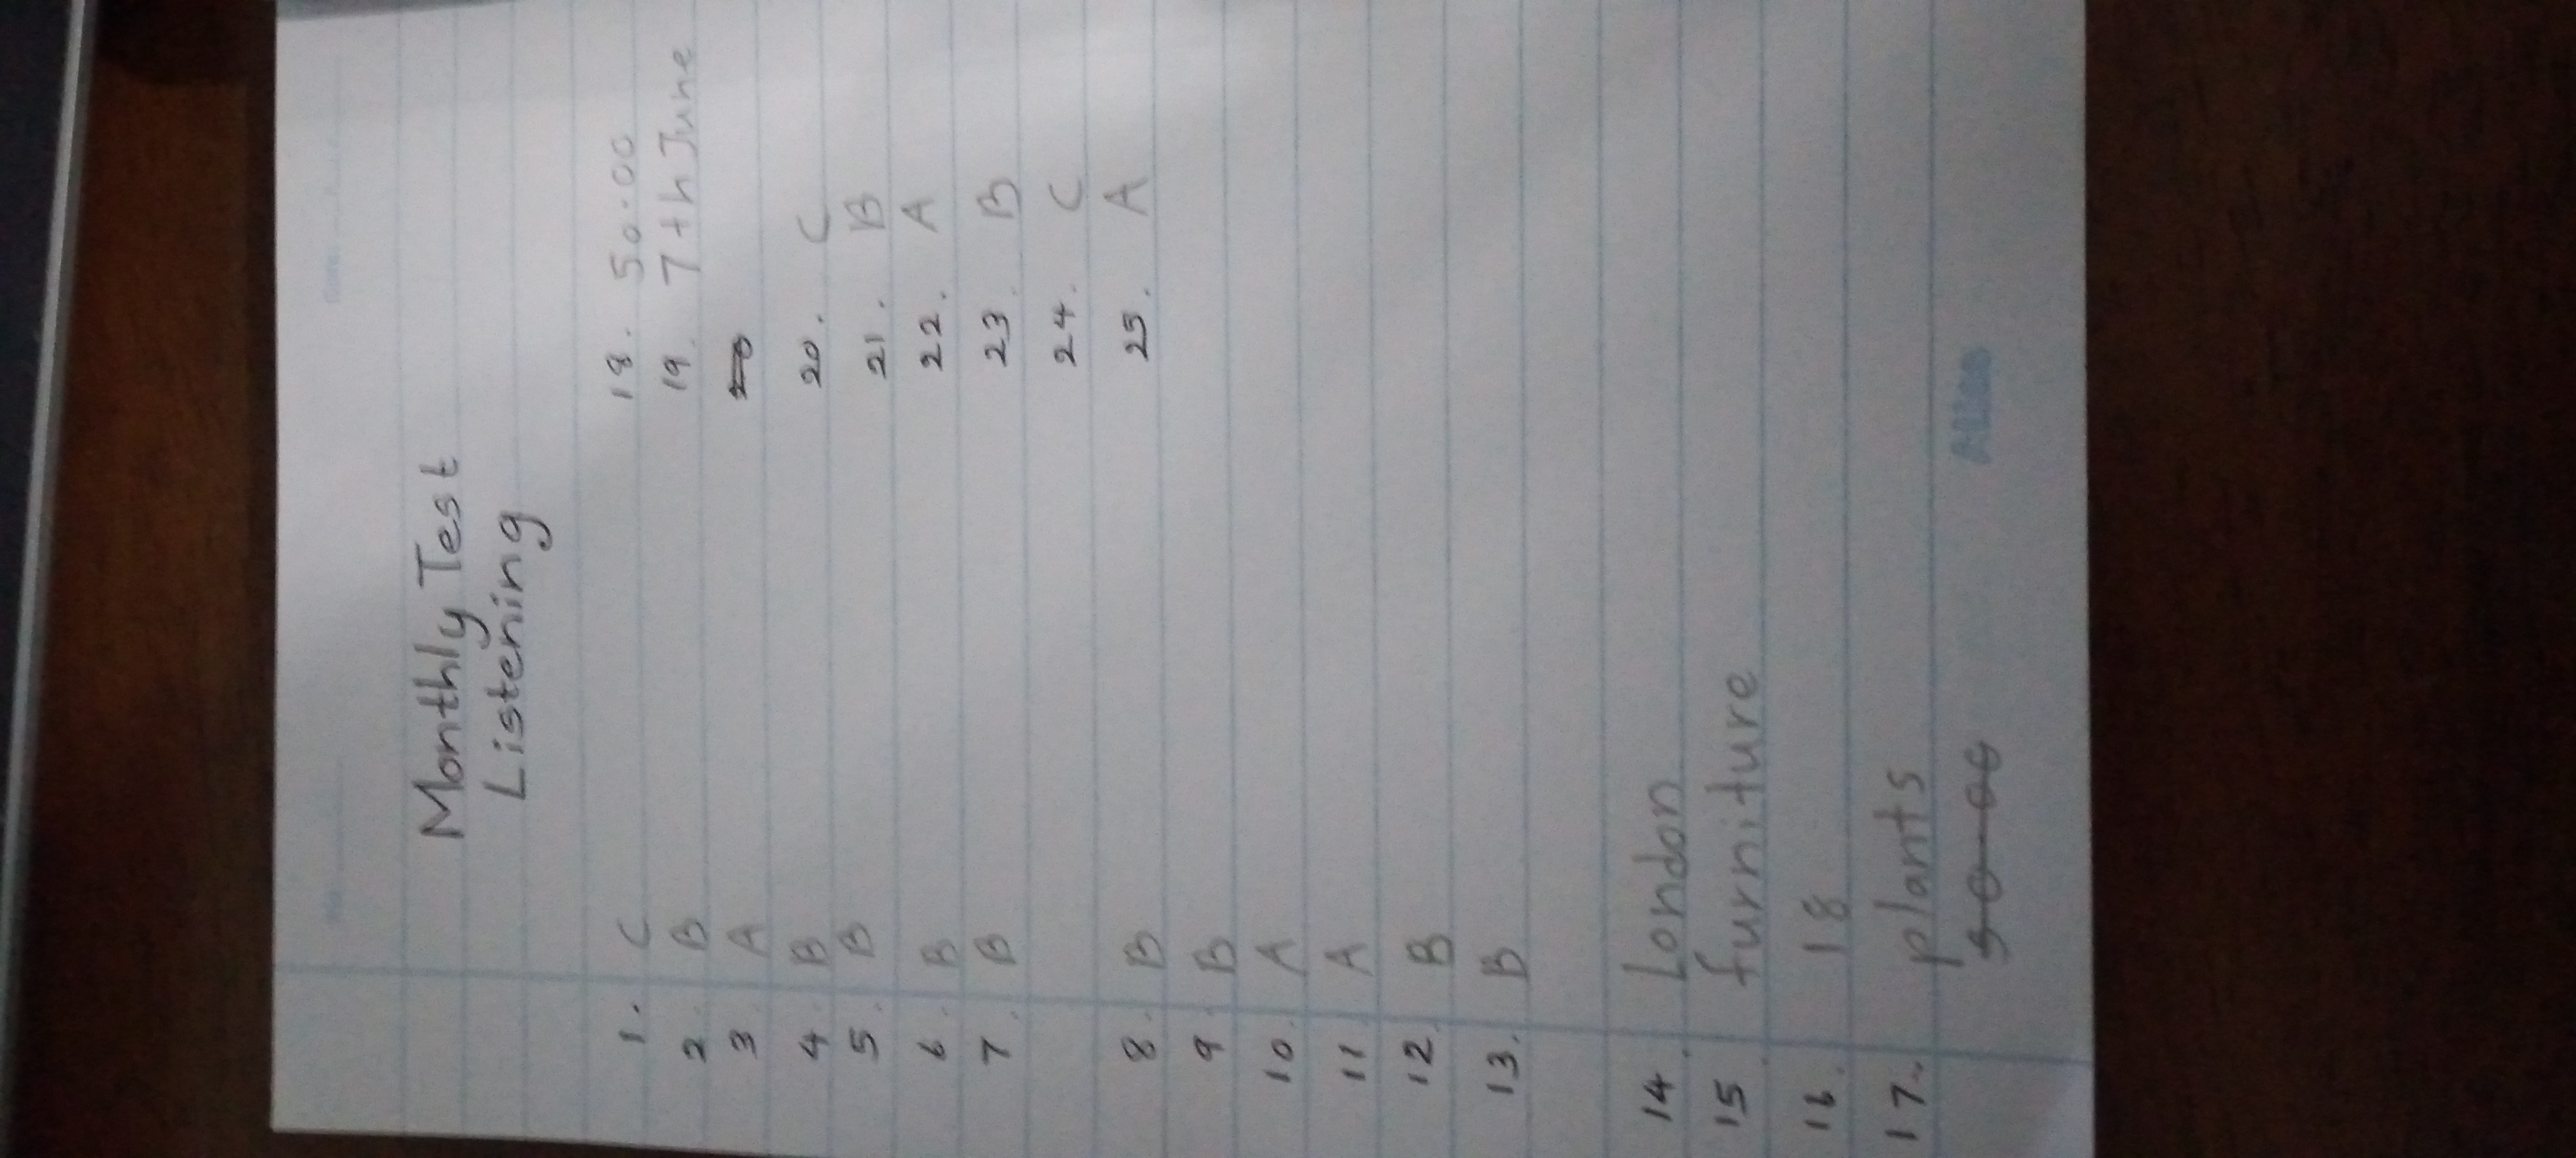 Monthly Test
Listening
1. C
2. B
3. A
4. B
5. B
6. B
7. B
8. B
9. B
10. A
11. A
12. B
13. B
14. London
15. furniture
16. 18
17. plants
50.00
18. 50.00
19. 7th June
20
20. C
21. B
22. A
23. B
24. C
25. A
Atlas